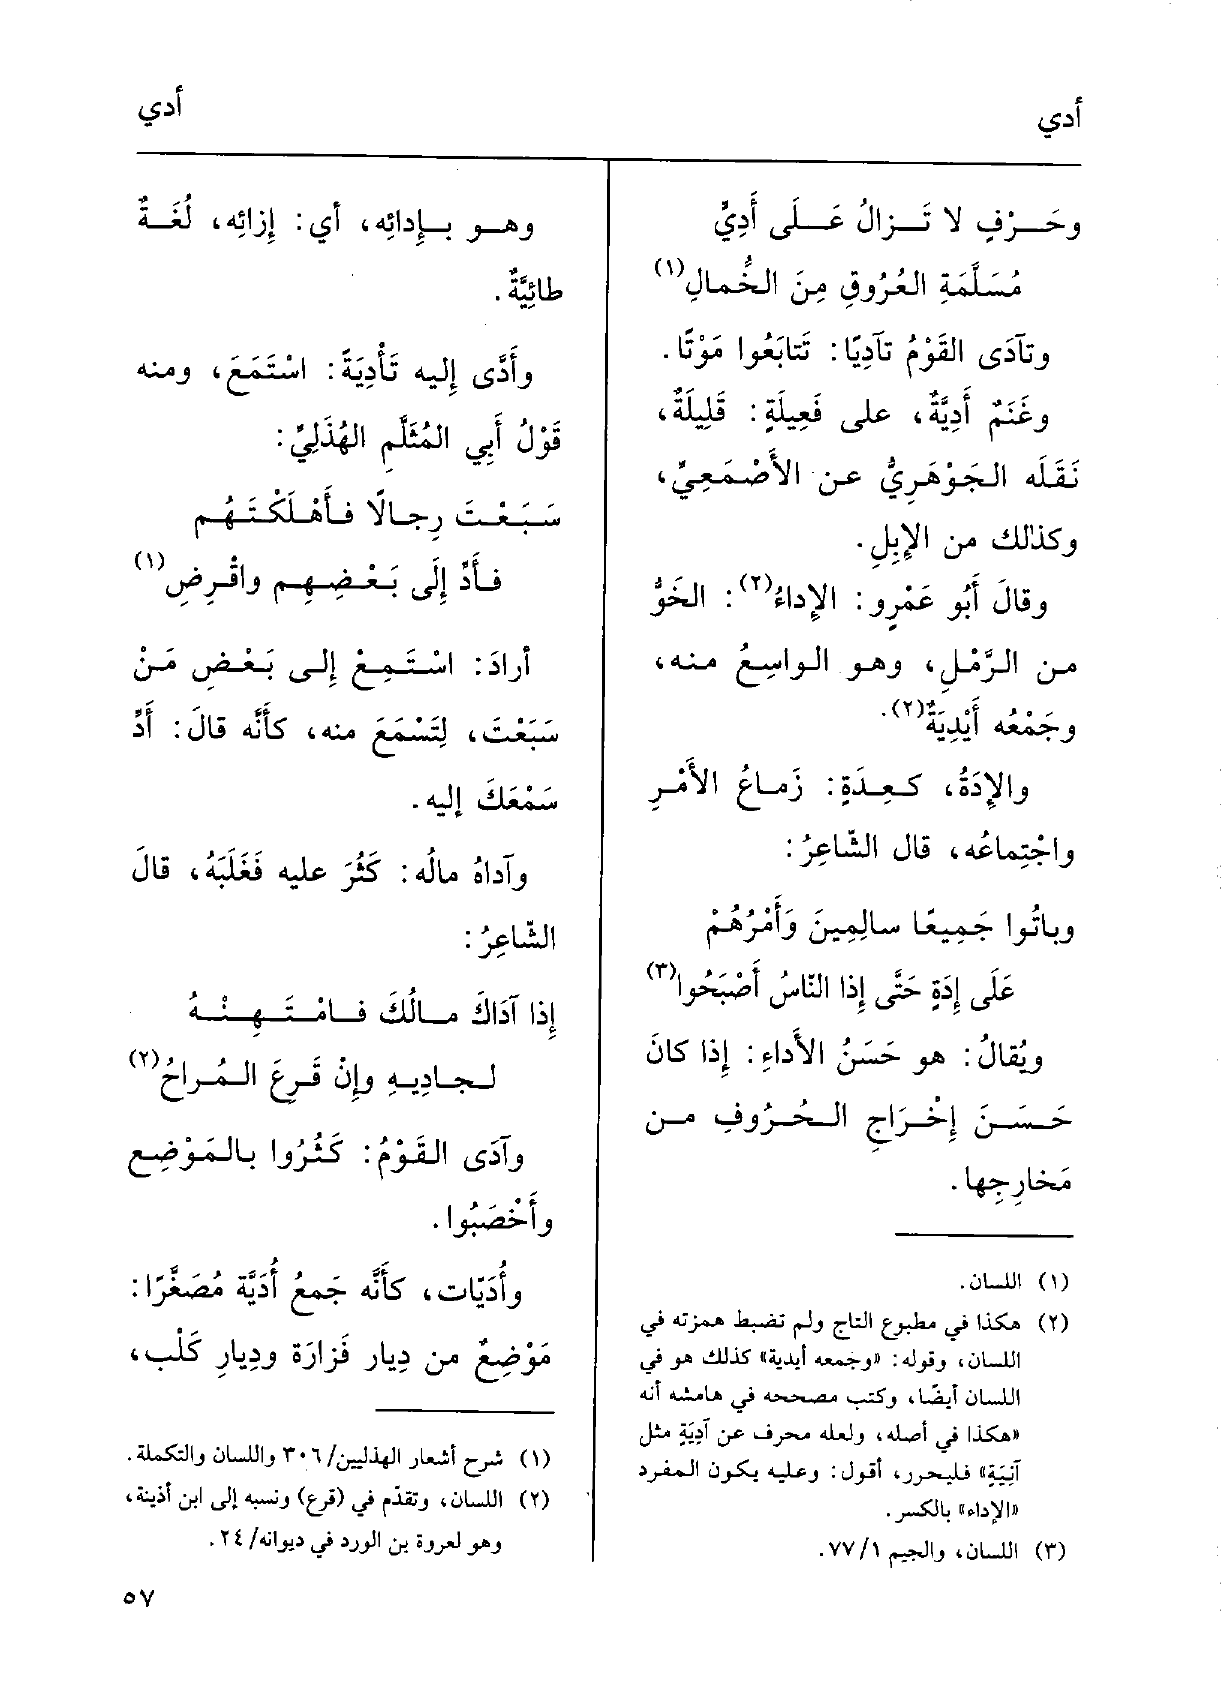 أدي
أدي
وحَرْفٍ لا تَزالُ عَلَى أَدِيٍّ
مُسَلَّمَةِ العُرُوقِ مِنَ الخُمالِ(١)
وتآدَى القَوْمُ تآدِيًا: تَتابَعُوا مَوْتًا.
وغَنَمٌ أَدِيَّةٌ، على فَعِيلَةٍ: قَلِيلَةٌ،
نَقَلَه الجَوْهَرِيُّ عن الأَصْمَعِيِّ،
وكذلك من الإبِلِ.
وقالَ أَبُو عَمْرٍو: الإداءُ(٢): الخَوُّ
من الرَّمْلِ، وهو الواسِعُ منه،
وجَمْعُه أَيْدِيَةٌ(٢).
والإدَةُ، كعِدَةٍ: زَماعُ الأَمْرِ
واجْتِماعُه، قال الشّاعِرُ:
وباتُوا جَمِيعًا سالِمِينَ وَأَمْرُهُمْ
عَلَى إدَةٍ حَتَّى إذا النّاسُ أَصْبَحُوا(٣)
ويُقالُ: هو حَسَنُ الأَداءِ: إذا كانَ
حَسَنَ إخْرَاجِ الحُرُوفِ من
مَخارِجِها.
(١) اللسان.
(٢) هكذا في مطبوع التاج ولم تضبط همزته في
اللسان، وقوله: «وجمعه أيدية» كذلك هو في
اللسان أيضًا، وكتب مصححه في هامشه أنه
«هكذا في أصله، ولعله محرف عن آدِيَةٍ مثل
آنِيَةٍ» فليحرر، أقول: وعليه يكون المفرد
«الإداء» بالكسر.
(٣) اللسان، والجيم ١/ ٧٧.
وهو بإدائِه، أي: إزائِه، لُغَةٌ
طائِيَّةٌ.
وأَدَّى إليه تَأْدِيَةً: اسْتَمَعَ، ومنه
قَوْلُ أَبِي المُثَلَّمِ الهُذَلِيِّ:
سَبَعْتَ رِجالًا فأَهْلَكْتَهُم
فأَدِّ إلَى بَعْضِهِم واقْرِضِ(١)
أرادَ: اسْتَمِعْ إلى بَعْضِ مَنْ
سَبَعْتَ، لِتَسْمَعَ منه، كأَنَّه قالَ: أَدِّ
سَمْعَكَ إليه.
وآداهُ مالُه: كَثُرَ عليه فَغَلَبَهُ، قالَ
الشّاعِرُ:
إذا آدَاكَ مالُكَ فامْتَهِنْهُ
لجادِيهِ وإنْ قَرِعَ المُراحُ(٢)
وآدَى القَوْمُ: كَثُرُوا بالمَوْضِع
وأَخْصَبُوا.
وأُدَيّات، كأَنَّه جَمعُ أُدَيَّة مُصَغَّرًا:
مَوْضِعٌ من دِيار فَزارَة ودِيارِ كَلْب،
(١) شرح أشعار الهذليين/ ٣٠٦ واللسان والتكملة.
(٢) اللسان، وتقدّم في (قرع) ونسبه إلى ابن أذينة،
وهو لعروة بن الورد في ديوانه/ ٢٤.
٥٧